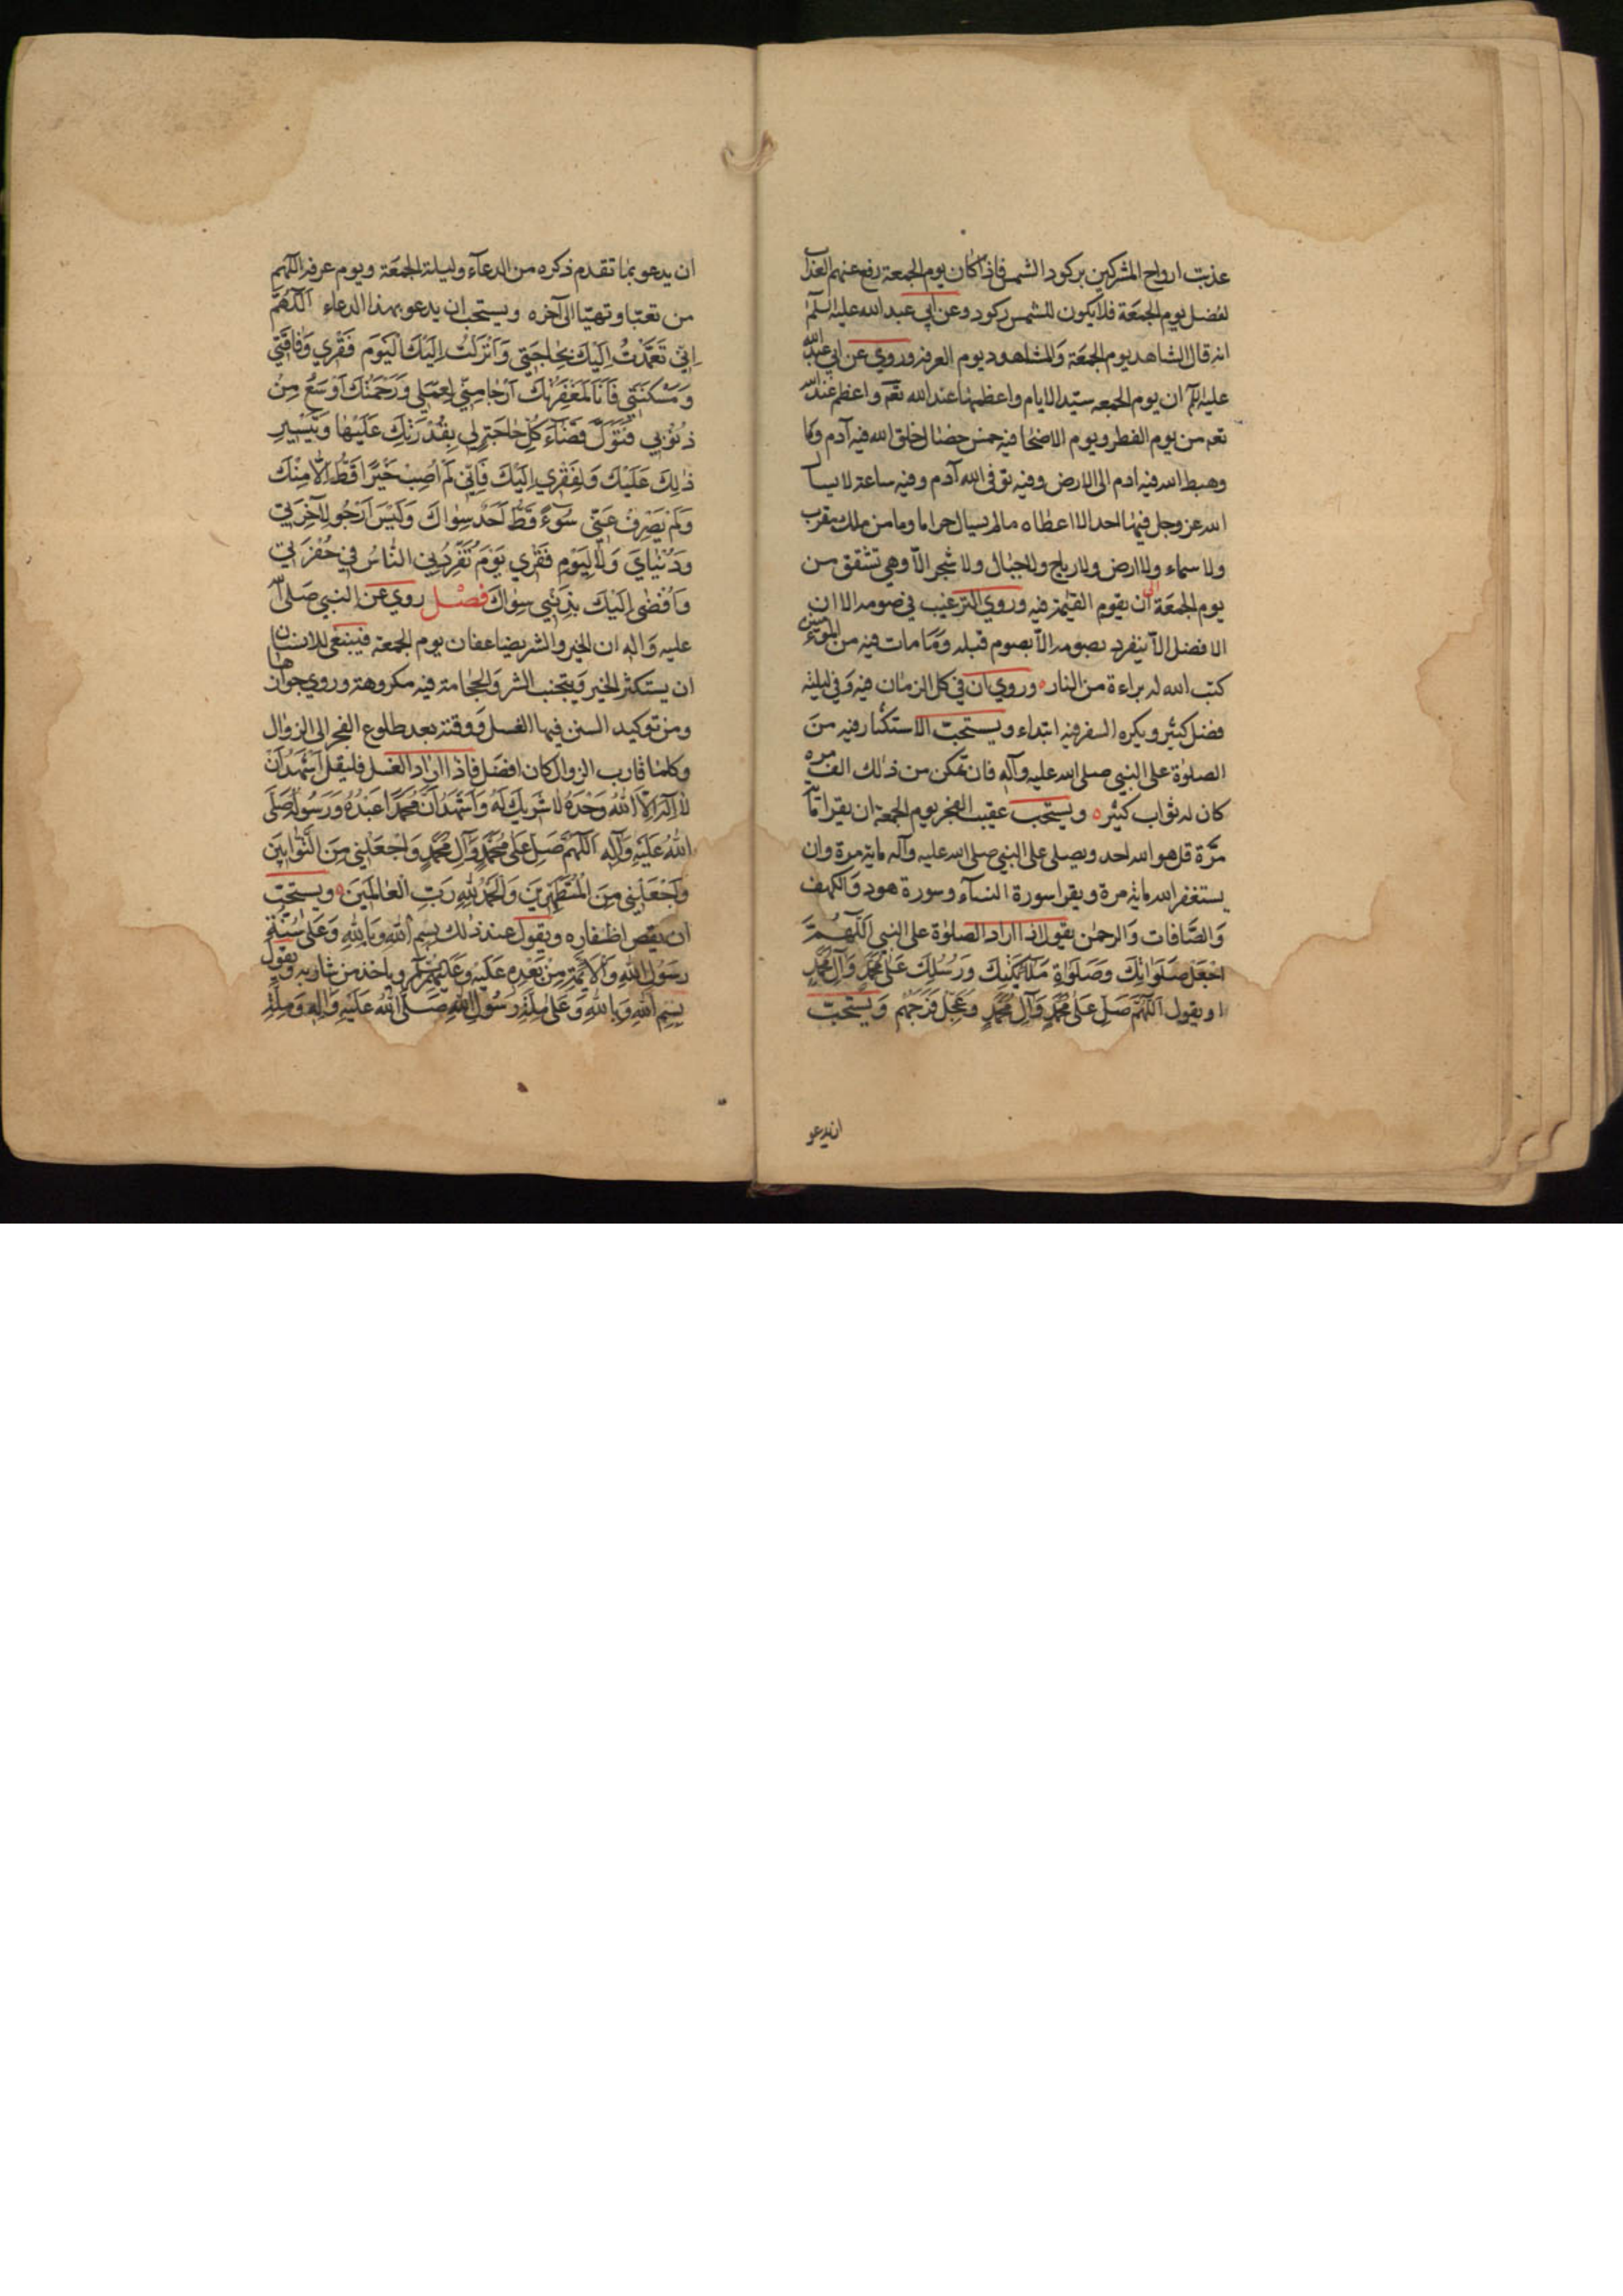 عذبت ارواح المشركين بركود الشمس فاذا كان يوم الجمعة رفع عنهم العذاب
لفضل يوم الجمعة فلا يكون للشمس ركود وعن ابي عبد الله عليه السلم
انه قال الشاهد يوم الجمعة والمشاهود يوم العرفة وروي عن ابي عبد الله
عليه السلم ان يوم الجمعه سيّد الايام واعظمها عند الله تعم واعظم عند الله
تعم من يوم الفطر ويوم الاضحا فيه خمس خصال خلق الله فيه آدم
وهبط الله فيه ادم الى الارض وفيه توفى الله آدم وفيه ساعة لا يسأل
الله عز وجل فيها احد الا اعطاه ما لم يسال حراما وما من ملك مقرب
ولا سماء ولا ارض ولا رياح ولا جبال ولا شجر الّا وهي تشفق من
يوم الجمعة الى ان يقوم القيٰمة فيه وروي الترغيب في صومه الا ان
الافضل الّا ينفرد بصومه الّا بصوم قبله وما مات فيه من المؤمنين
كتب الله له براءة من النار ه وروي ان في كل الزمان فيه وفي ليلته
فضل كثير ويكره السفر فيه ابتداء ويستحبّ الاستكثار فيه من
الصلوٰة على النبي صلى الله عليه وآله فان تمكن من ذالك الف مره
كان له ثواب كثير ه ويستحب عقيب الفجر يوم الجمعة ان يقرا مأة
مرّة قل هو الله احد ويصلى على النبي صلى الله عليه وآله ماية مرة وان
يستغفر الله ماية مرة ويقرا سورة النساء وسورة هود والكهف
والصّافات والرحمٰن يقول اذا اراد الصلوٰة على النبي اَللّٰهُمَّ
اجْعَلْ صَلَوَاتِكَ وَصَلَوٰاةِ مَلَآئِكَتِكَ وَرُسُلِكَ عَلٰى مُحَمَّدٍ وَآلِ مُحَمَّدٍ
او يقول اَللّٰهُمَّ صَلِّ عَلٰى مُحَمَّدٍ وَآلِ مُحَمَّدٍ وَعَجِّلْ فَرَجَهُمْ ويستحبّ
ان يدعو
ان يدعو بما تقدم ذكره من الدعآء وليلة الجمعة ويوم عرفة اللهم
من تعبّا وتهيّا الى آخره ويستحب ان يدعو بهذا الدعاء اَللّٰهُمَّ
اِنّي تَعَمَّدْتُ اِلَيْكَ بِحٰاجَتي وَاَنْزَلْتُ اِلَيْكَ الْيَوْمَ فَقْري وَفٰاقَتي
وَمَسْكَنَتي فَاَنَا لِمَغْفِرَتِكَ اَرْجٰا مِنّي لِعَمَلي وَرَحْمَتُكَ اَوْسَعُ مِنْ
ذُنُوبي فَتَوَلَّ قَضٰآءَ كُلِّ حٰاجَةٍ لي بِقُدْرَتِكَ عَلَيْهٰا وَتَيْسيرِ
ذٰلِكَ عَلَيْكَ وَلِفَقْري اِلَيْكَ فَاِنّي لَمْ اُصِبْ خَيْرًا قَطُّ اِلّٰا مِنْكَ
وَلَمْ يَصْرِفْ عَنّي سُوٓءً قَطُّ اَحَدٌ سِوٰاكَ وَلَيْسَ اَرْجُو لِآخِرَتي
وَدُنْيٰايَ وَلٰا لِيَوْمِ فَقْري يَوْمَ تُفَرِّدُني النّٰاسُ في حُفْرَتي
وَاُفْضٰى اِلَيْكَ بِذَنْبي سِوٰاكَ فصْل روي عن النبي صَلى الله
عليه وآله ان الخير والشر يضاعفان يوم الجمعة فينبغي للانسان
ان يستكثر الخير ويتجنب الشر والحجامة فيه مكروهة وروي جوازها
ومن توكيد السنن فيها الغسل ووقته بعد طلوع الفجر الى الزوال
وكلما قارب الزوال كان افضل فاذا اراد الغسل فليقل اَشْهَدُ اَنْ
لٰا اِلٰهَ اِلّا اللّٰهُ وَحْدَهُ لٰا شَريكَ لَهُ وَاَشْهَدُ اَنَّ مُحَمَّدًا عَبْدُهُ وَرَسُولُهُ صَلَّى
اللّٰهُ عَلَيْهِ وَآلِه اَللّٰهُمَّ صَلِّ عَلٰى مُحَمَّدٍ وَآلِ مُحَمَّدٍ وَاجْعَلْني مِنَ التَّوّٰابينَ
وَاجْعَلْني مِنَ الْمُتَطَهِّرينَ وَالْحَمْدُ لِلّٰهِ رَبِّ الْعٰالَمينَ ه ويستحبّ
ان يقص اظفاره ويقول عند ذالك بِسْمِ اللّٰهِ وَبِاللّٰهِ وَعَلٰى سُنَّةِ
رَسُولِ اللّٰهِ وَالْاَئِمَّةِ مِنْ بَعْدِهِ عَلَيْهِ وَعَلَيْهِمُ السَّلٰم وياخذ من شاربه ويقول
بِسْمِ اللّٰهِ وَبِاللّٰهِ وَعَلٰى مِلَّةِ رَسُولِ اللّٰهِ صَلَّى اللّٰهُ عَلَيْهِ وَآلِهِ وَمِلَّةِ